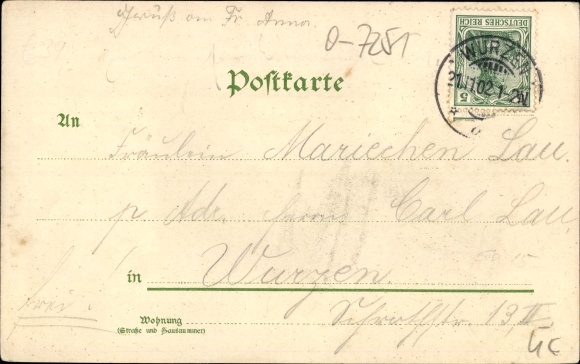 Gruß an Fr. Anna
O-7251
DEUTSCHES REICH
5
WURZEN
21.11.02.1-2N.
Postkarte
An
Fräulein Mariechen Lau.
p. Adr. Herrn Carl Lau,
in Wurzen.
frei!
Wohnung
(Straße und Hausnummer)
13, III
4€